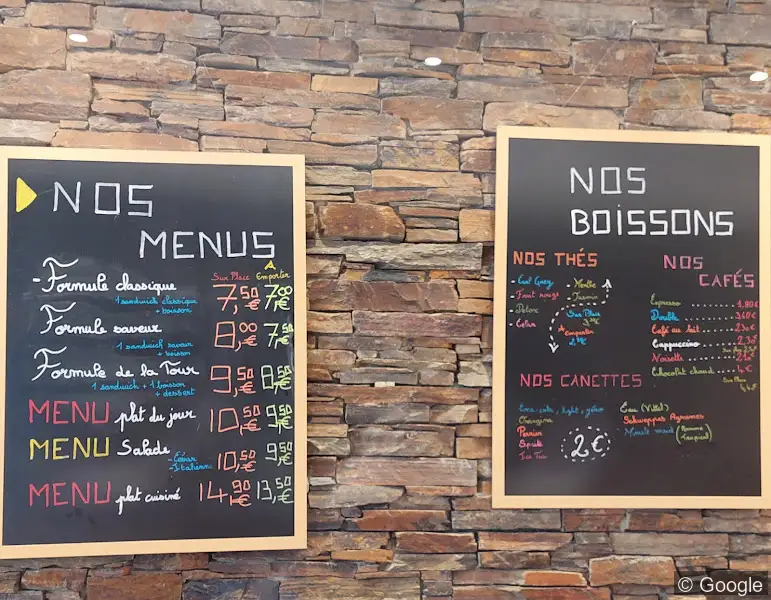 NOS
MENUS
Sur Place
A Emporter
-Formule classique 7,50€ 7,00€
1 sandwich classique
+ boisson
Formule saveur 8,00€ 7,50€
1 sandwich saveur
+ boisson
Formule de la Tour 9,50€ 8,50€
1 sandwich + 1 boisson
+ dessert
MENU plat du jour 10,50€ 9,50€
MENU Salade 10,50€ 9,50€
- César
- Italienne
MENU plat cuisiné 14,90€ 13,50€
NOS
BOISSONS
NOS THÉS
- Earl Grey
- Fruit rouge
- Détox
- Menthe
- Jasmin
Sur Place
A Emporter
NOS
CAFÉS
Espresso 1,80€
Double
Café au lait
Cappuccino
Noisette
Chocolat chaud 4€
Sur Place
NOS CANETTES
Coca-cola, light, zéro
Orangina
Perrier
Sprite
Ice Tea
2€
Eau (Vittel)
Schweppes Agrumes
(Pomme
Tropical)
© Google